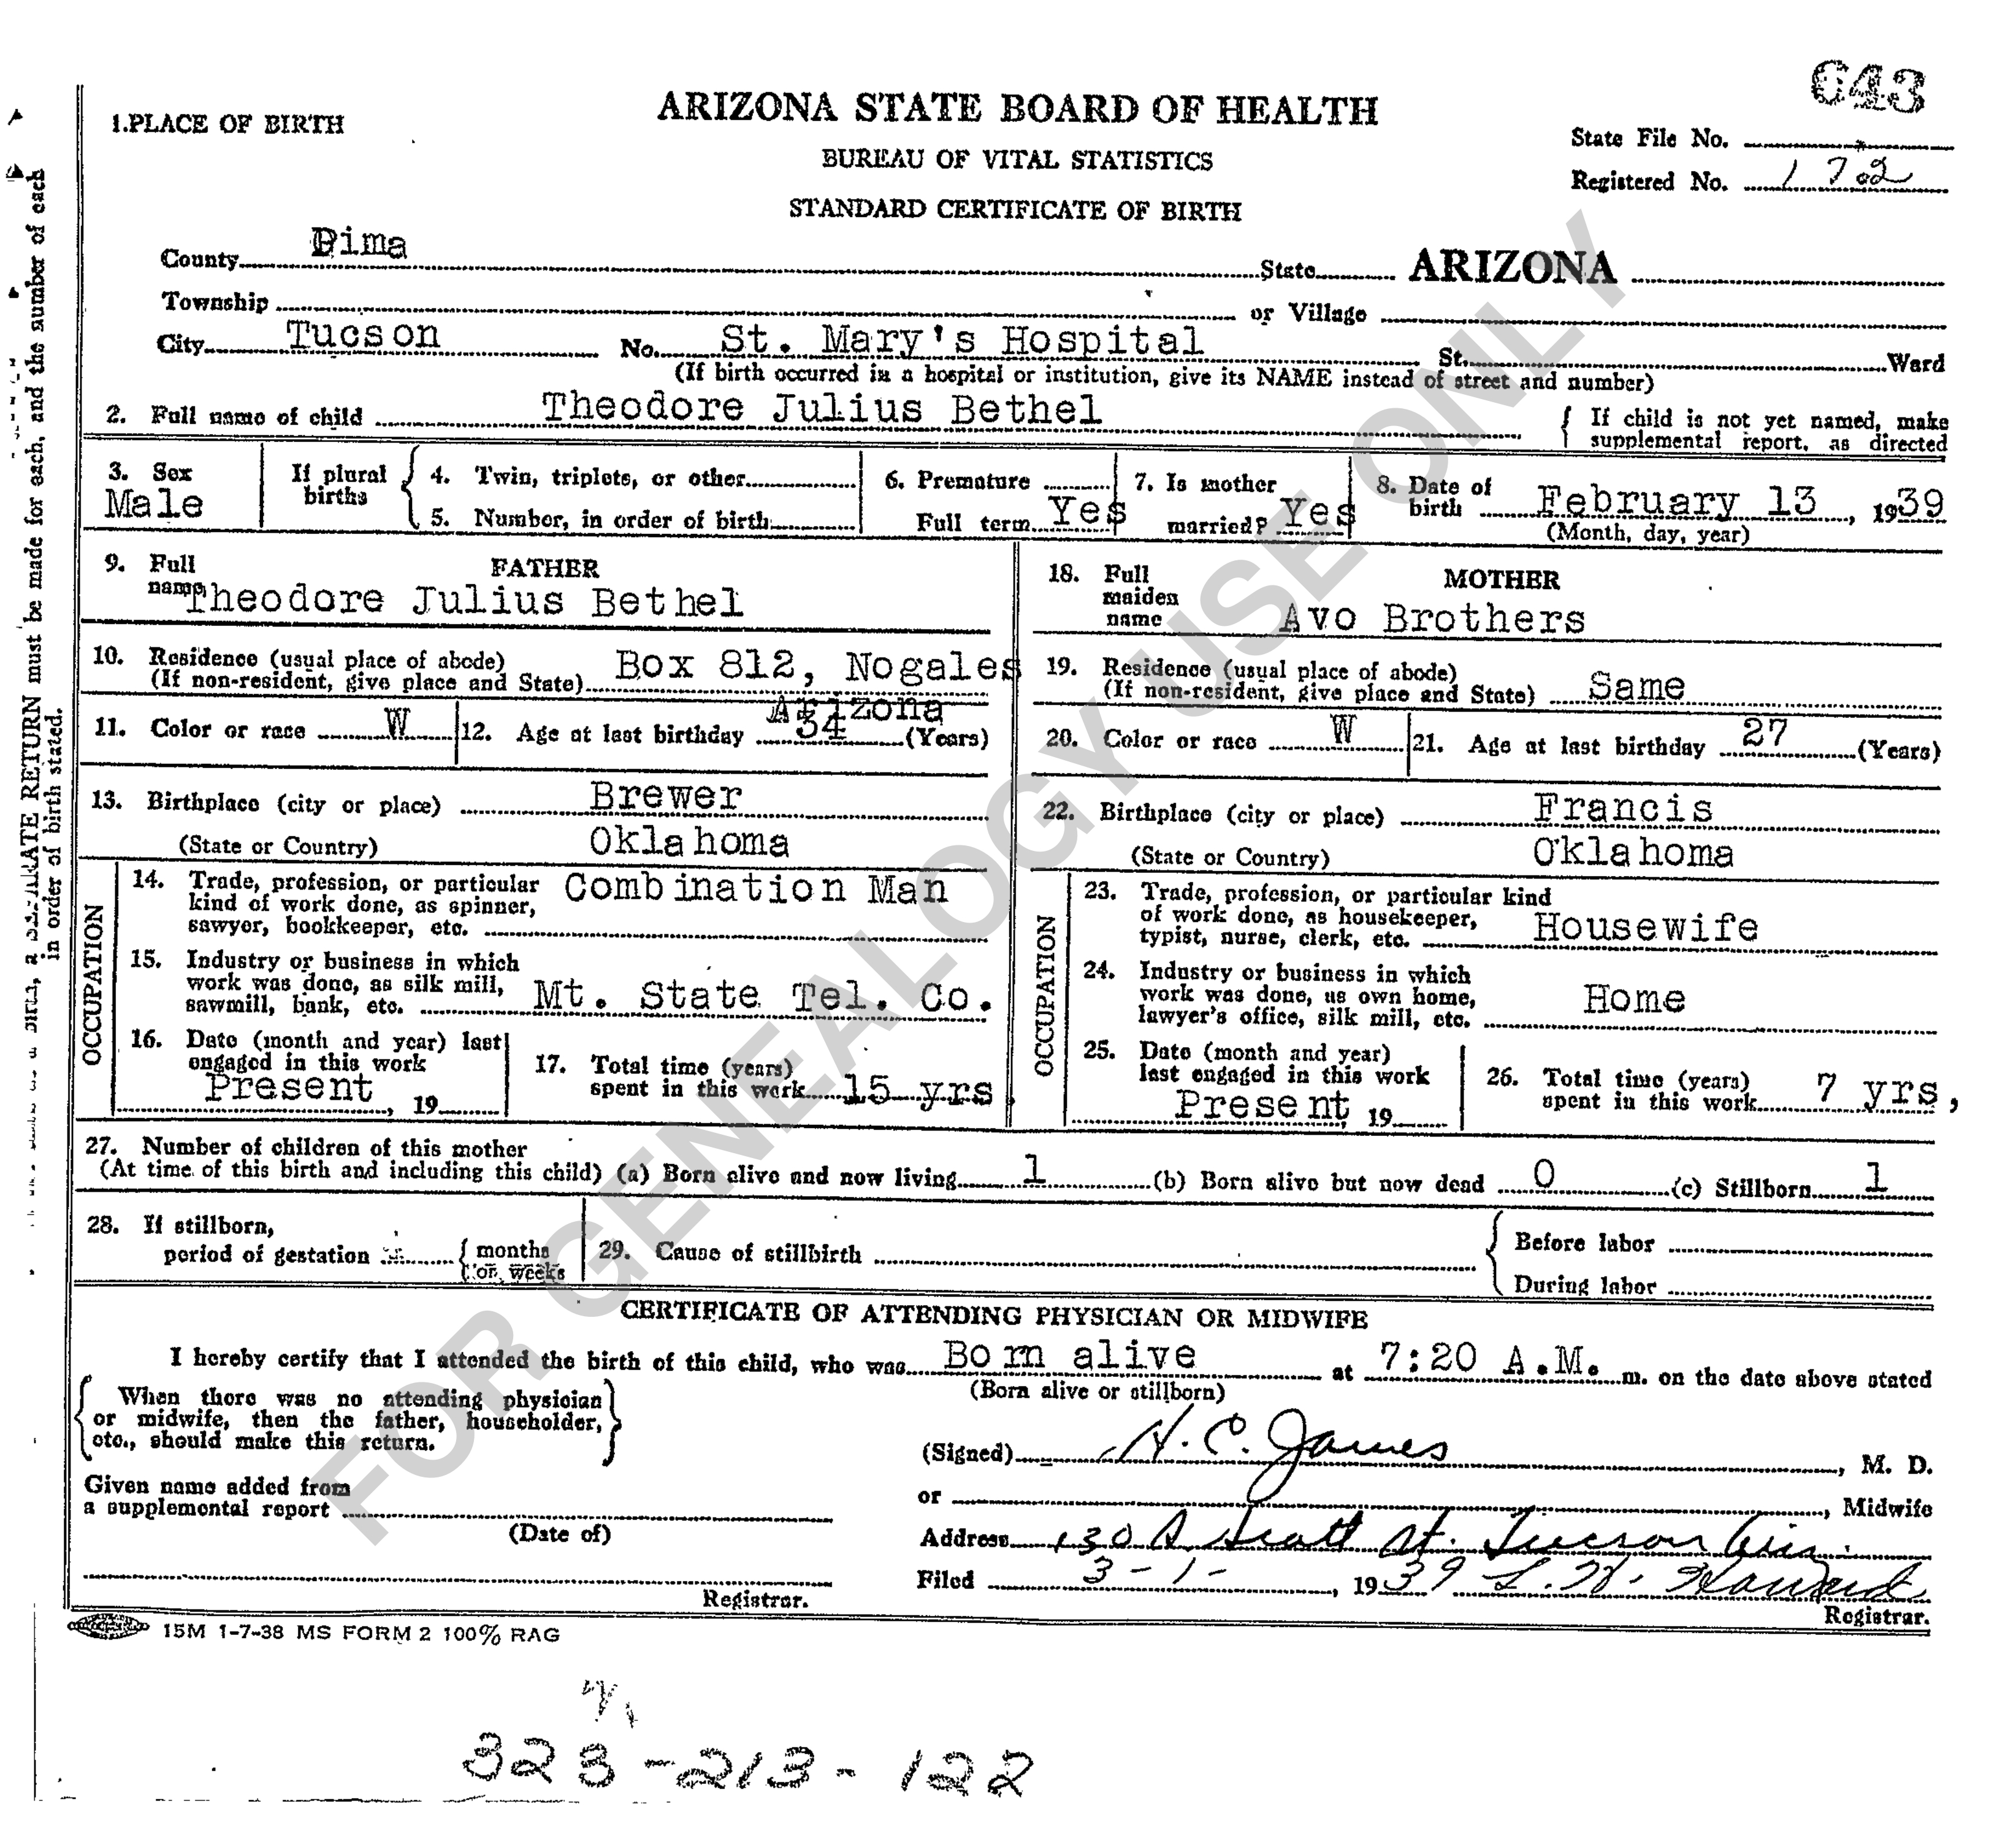 643
1.PLACE OF BIRTH
ARIZONA STATE BOARD OF HEALTH
State File No.
BUREAU OF VITAL STATISTICS
Registered No. 172
STANDARD CERTIFICATE OF BIRTH
County Pima State ARIZONA
Township or Village
City Tucson No. St. Mary's Hospital St. Ward
(If birth occurred in a hospital or institution, give its NAME instead of street and number)
2. Full name of child Theodore Julius Bethel
If child is not yet named, make
supplemental report, as directed
3. Sex
Male
If plural
births
4. Twin, triplets, or other
5. Number, in order of birth
6. Premature
Full term Yes
7. Is mother
married? Yes
8. Date of
birth February 13, 1939
(Month, day, year)
FATHER
9. Full
name Theodore Julius Bethel
10. Residence (usual place of abode)
(If non-resident, give place and State) Box 812, Nogales
Arizona
11. Color or race W 12. Age at last birthday 34 (Years)
13. Birthplace (city or place) Brewer
(State or Country) Oklahoma
OCCUPATION
14. Trade, profession, or particular
kind of work done, as spinner,
sawyer, bookkeeper, etc. Combination Man
15. Industry or business in which
work was done, as silk mill,
sawmill, bank, etc. Mt. State Tel. Co.
16. Date (month and year) last
engaged in this work
Present, 19
17. Total time (years)
spent in this work 15 yrs
MOTHER
18. Full
maiden
name Avo Brothers
19. Residence (usual place of abode)
(If non-resident, give place and State) Same
20. Color or race W 21. Age at last birthday 27 (Years)
22. Birthplace (city or place) Francis
(State or Country) Oklahoma
OCCUPATION
23. Trade, profession, or particular kind
of work done, as housekeeper,
typist, nurse, clerk, etc. Housewife
24. Industry or business in which
work was done, as own home,
lawyer's office, silk mill, etc. Home
25. Date (month and year)
last engaged in this work
Present, 19
26. Total time (years)
spent in this work 7 yrs,
27. Number of children of this mother
(At time of this birth and including this child) (a) Born alive and now living 1 (b) Born alive but now dead 0 (c) Stillborn 1
28. If stillborn,
period of gestation
months
or weeks
29. Cause of stillbirth
Before labor
During labor
CERTIFICATE OF ATTENDING PHYSICIAN OR MIDWIFE
I hereby certify that I attended the birth of this child, who was Born alive at 7:20 A.M. m. on the date above stated
(Born alive or stillborn)
When there was no attending physician
or midwife, then the father, householder,
etc., should make this return.
(Signed) H. C. James, M. D.
or , Midwife
Given name added from
a supplemental report
(Date of)
Address 130 S. Scott St. Tucson Ariz.
Filed 3-1-, 1939 L. H. Howard
Registrar.
Registrar.
15M 1-7-38 MS FORM 2 100% RAG
323-213-122
a SEPARATE RETURN must be made for each, and the number of each
in order of birth stated.
FOR GENEALOGY USE ONLY